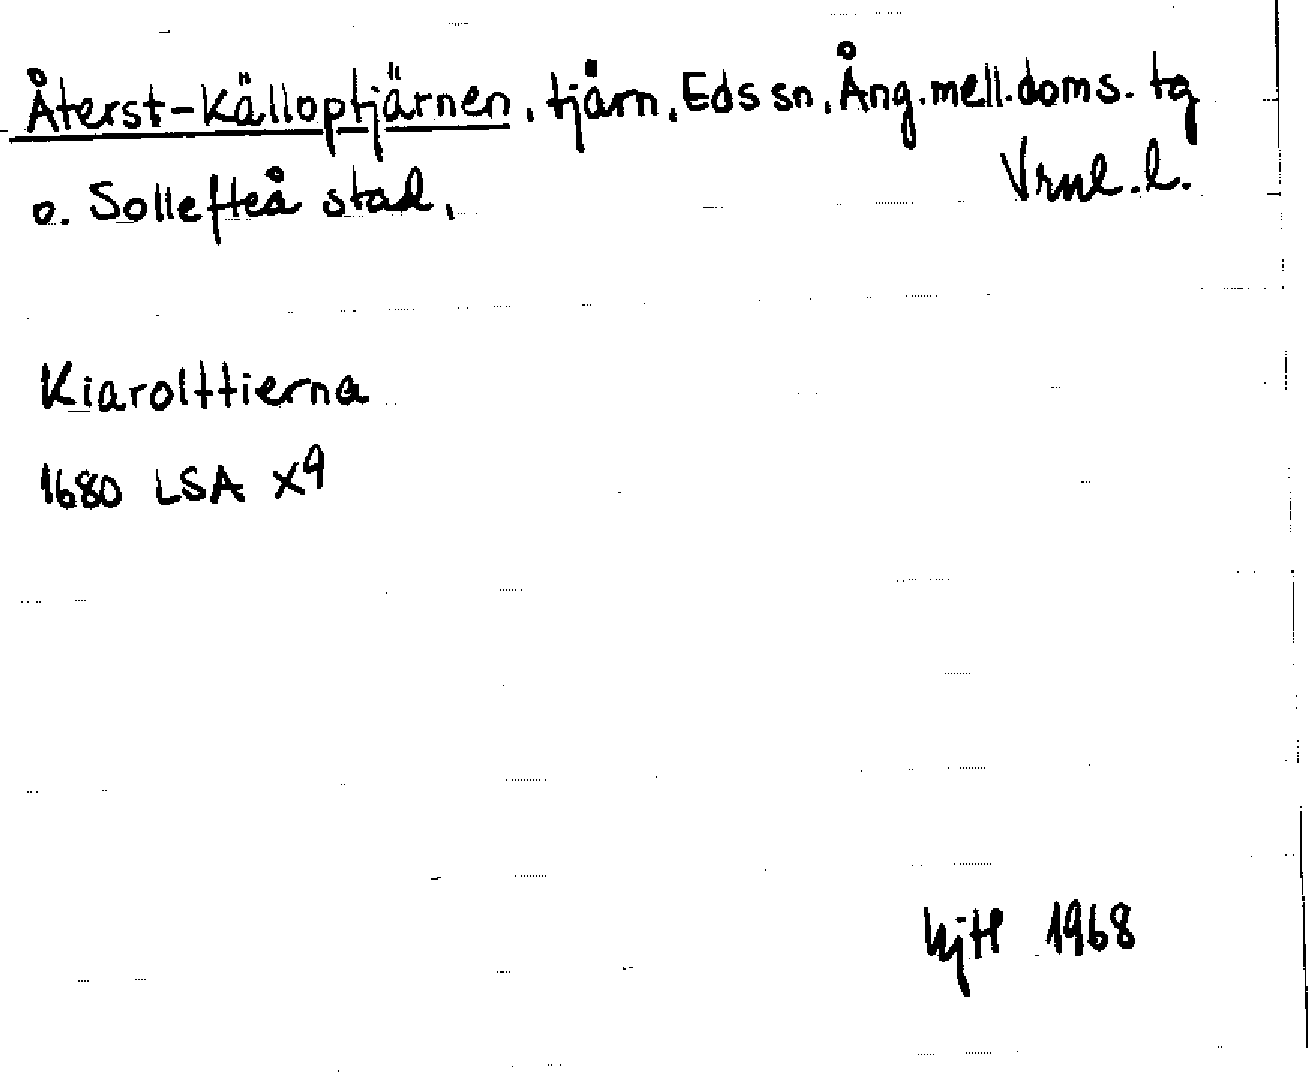 Återst-Källoptjärnen, tjärn, Eds sn, Ång. mell. doms. tg
o. Sollefteå stad, Vrnl. l.
Kiarolttierna
1680 LSA X9
1968